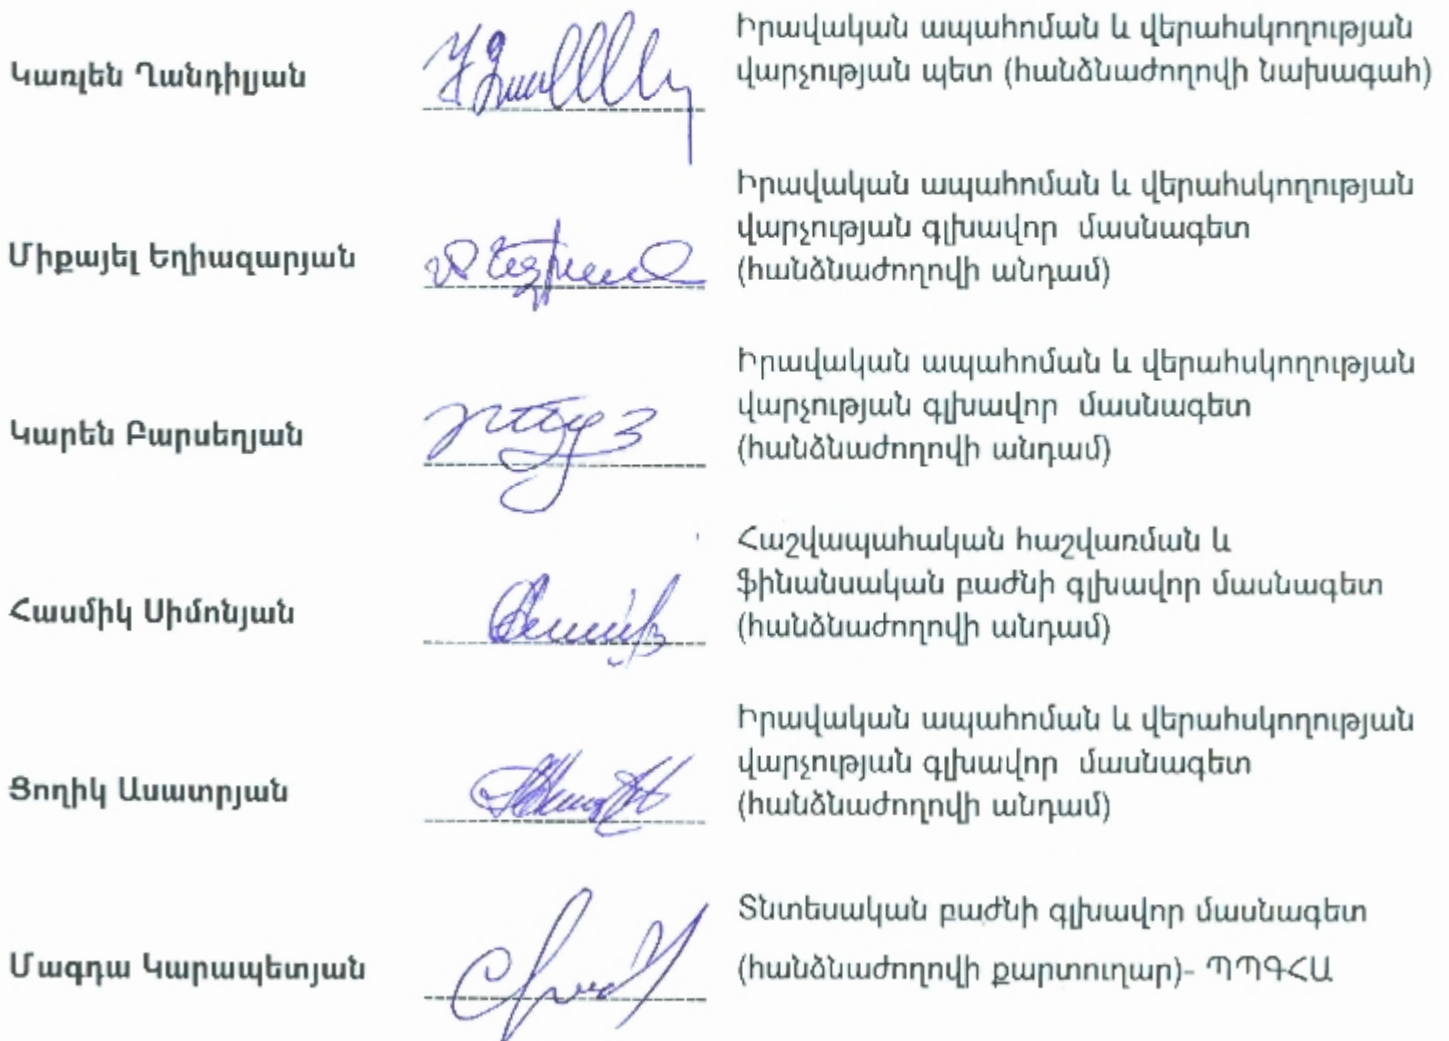 Կառլեն Ղանդիլյան
Իրավական ապահոման և վերահսկողության
վարչության պետ (հանձնաժողովի նախագահ)
Միքայել Եղիազարյան
Իրավական ապահոման և վերահսկողության
վարչության գլխավոր մասնագետ
(հանձնաժողովի անդամ)
Կարեն Բարսեղյան
Իրավական ապահոման և վերահսկողության
վարչության գլխավոր մասնագետ
(հանձնաժողովի անդամ)
Հասմիկ Սիմոնյան
Հաշվապահական հաշվառման և
ֆինանսական բաժնի գլխավոր մասնագետ
(հանձնաժողովի անդամ)
Ցողիկ Ասատրյան
Իրավական ապահոման և վերահսկողության
վարչության գլխավոր մասնագետ
(հանձնաժողովի անդամ)
Մագդա Կարապետյան
Տնտեսական բաժնի գլխավոր մասնագետ
(հանձնաժողովի քարտուղար)- ՊՊԳՀԱ